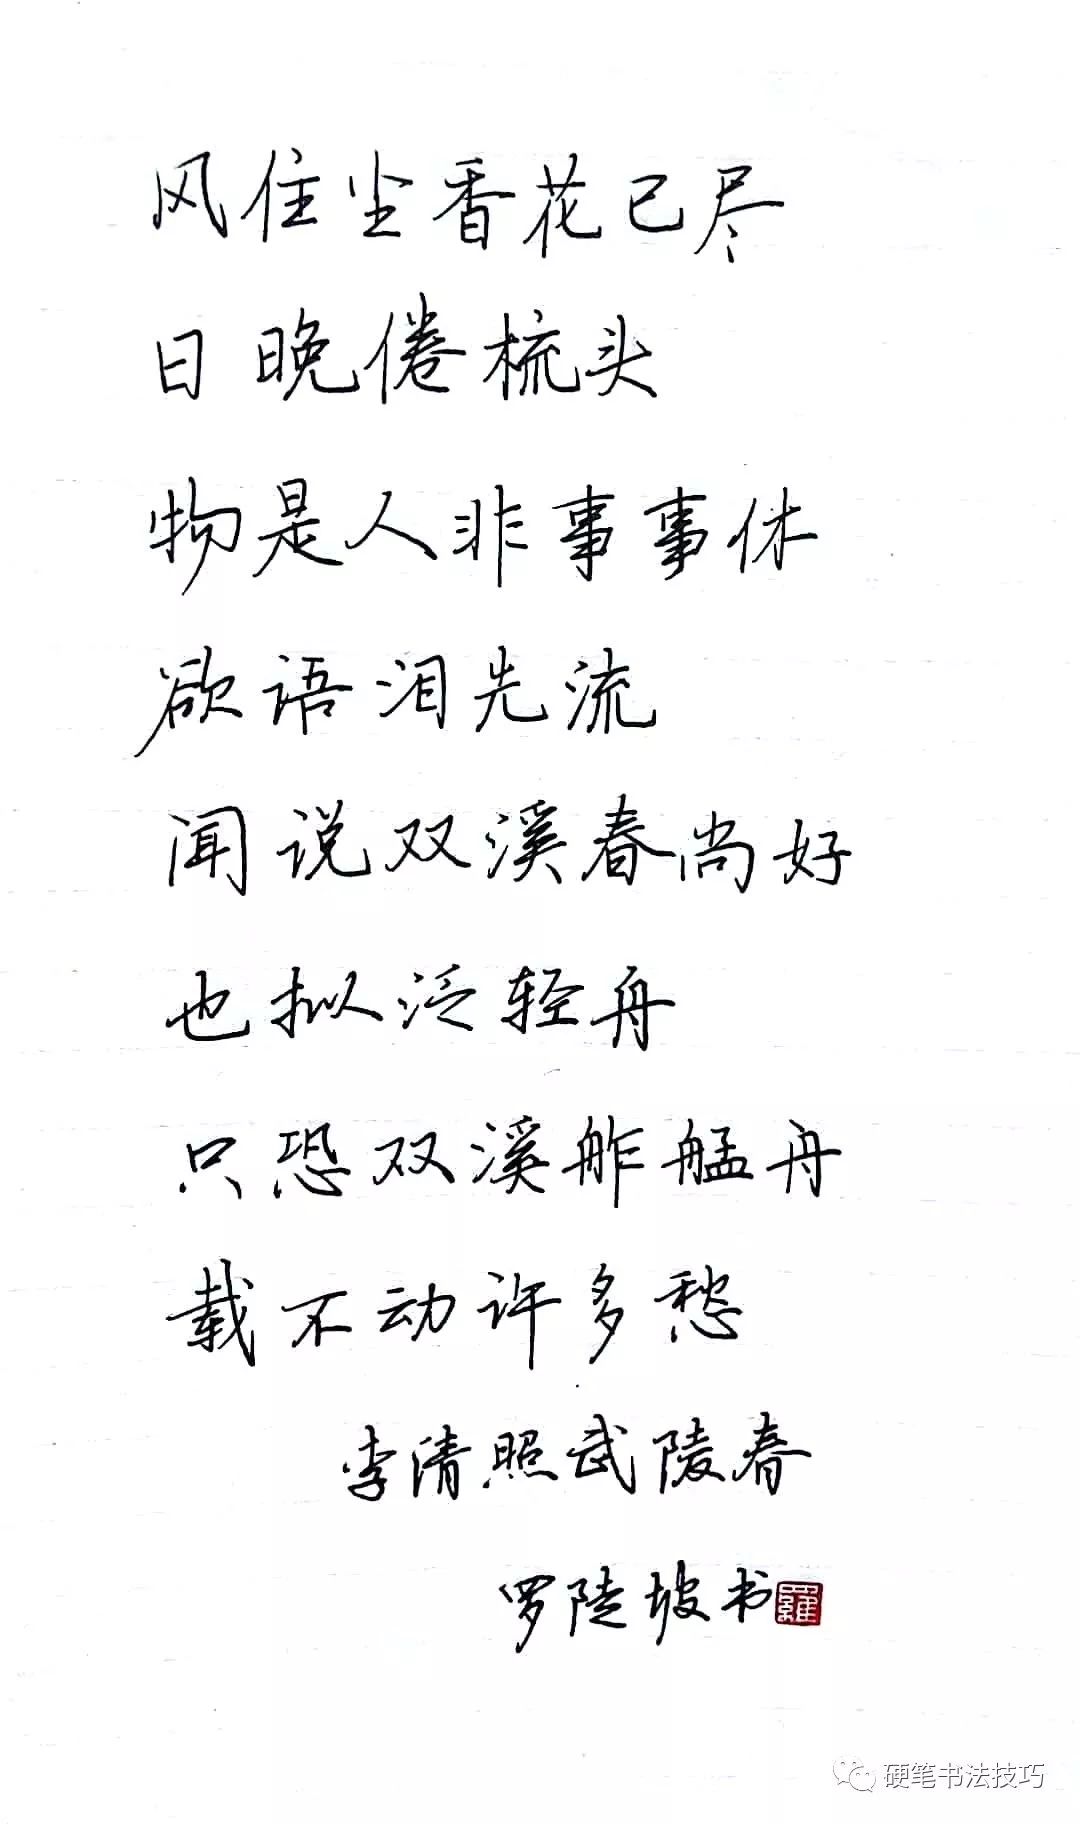 风住尘香花已尽
日晚倦梳头
物是人非事事休
欲语泪先流
闻说双溪春尚好
也拟泛轻舟
只恐双溪舴艋舟
载不动许多愁
李清照武陵春
罗陡坡书
羅
硬笔书法技巧